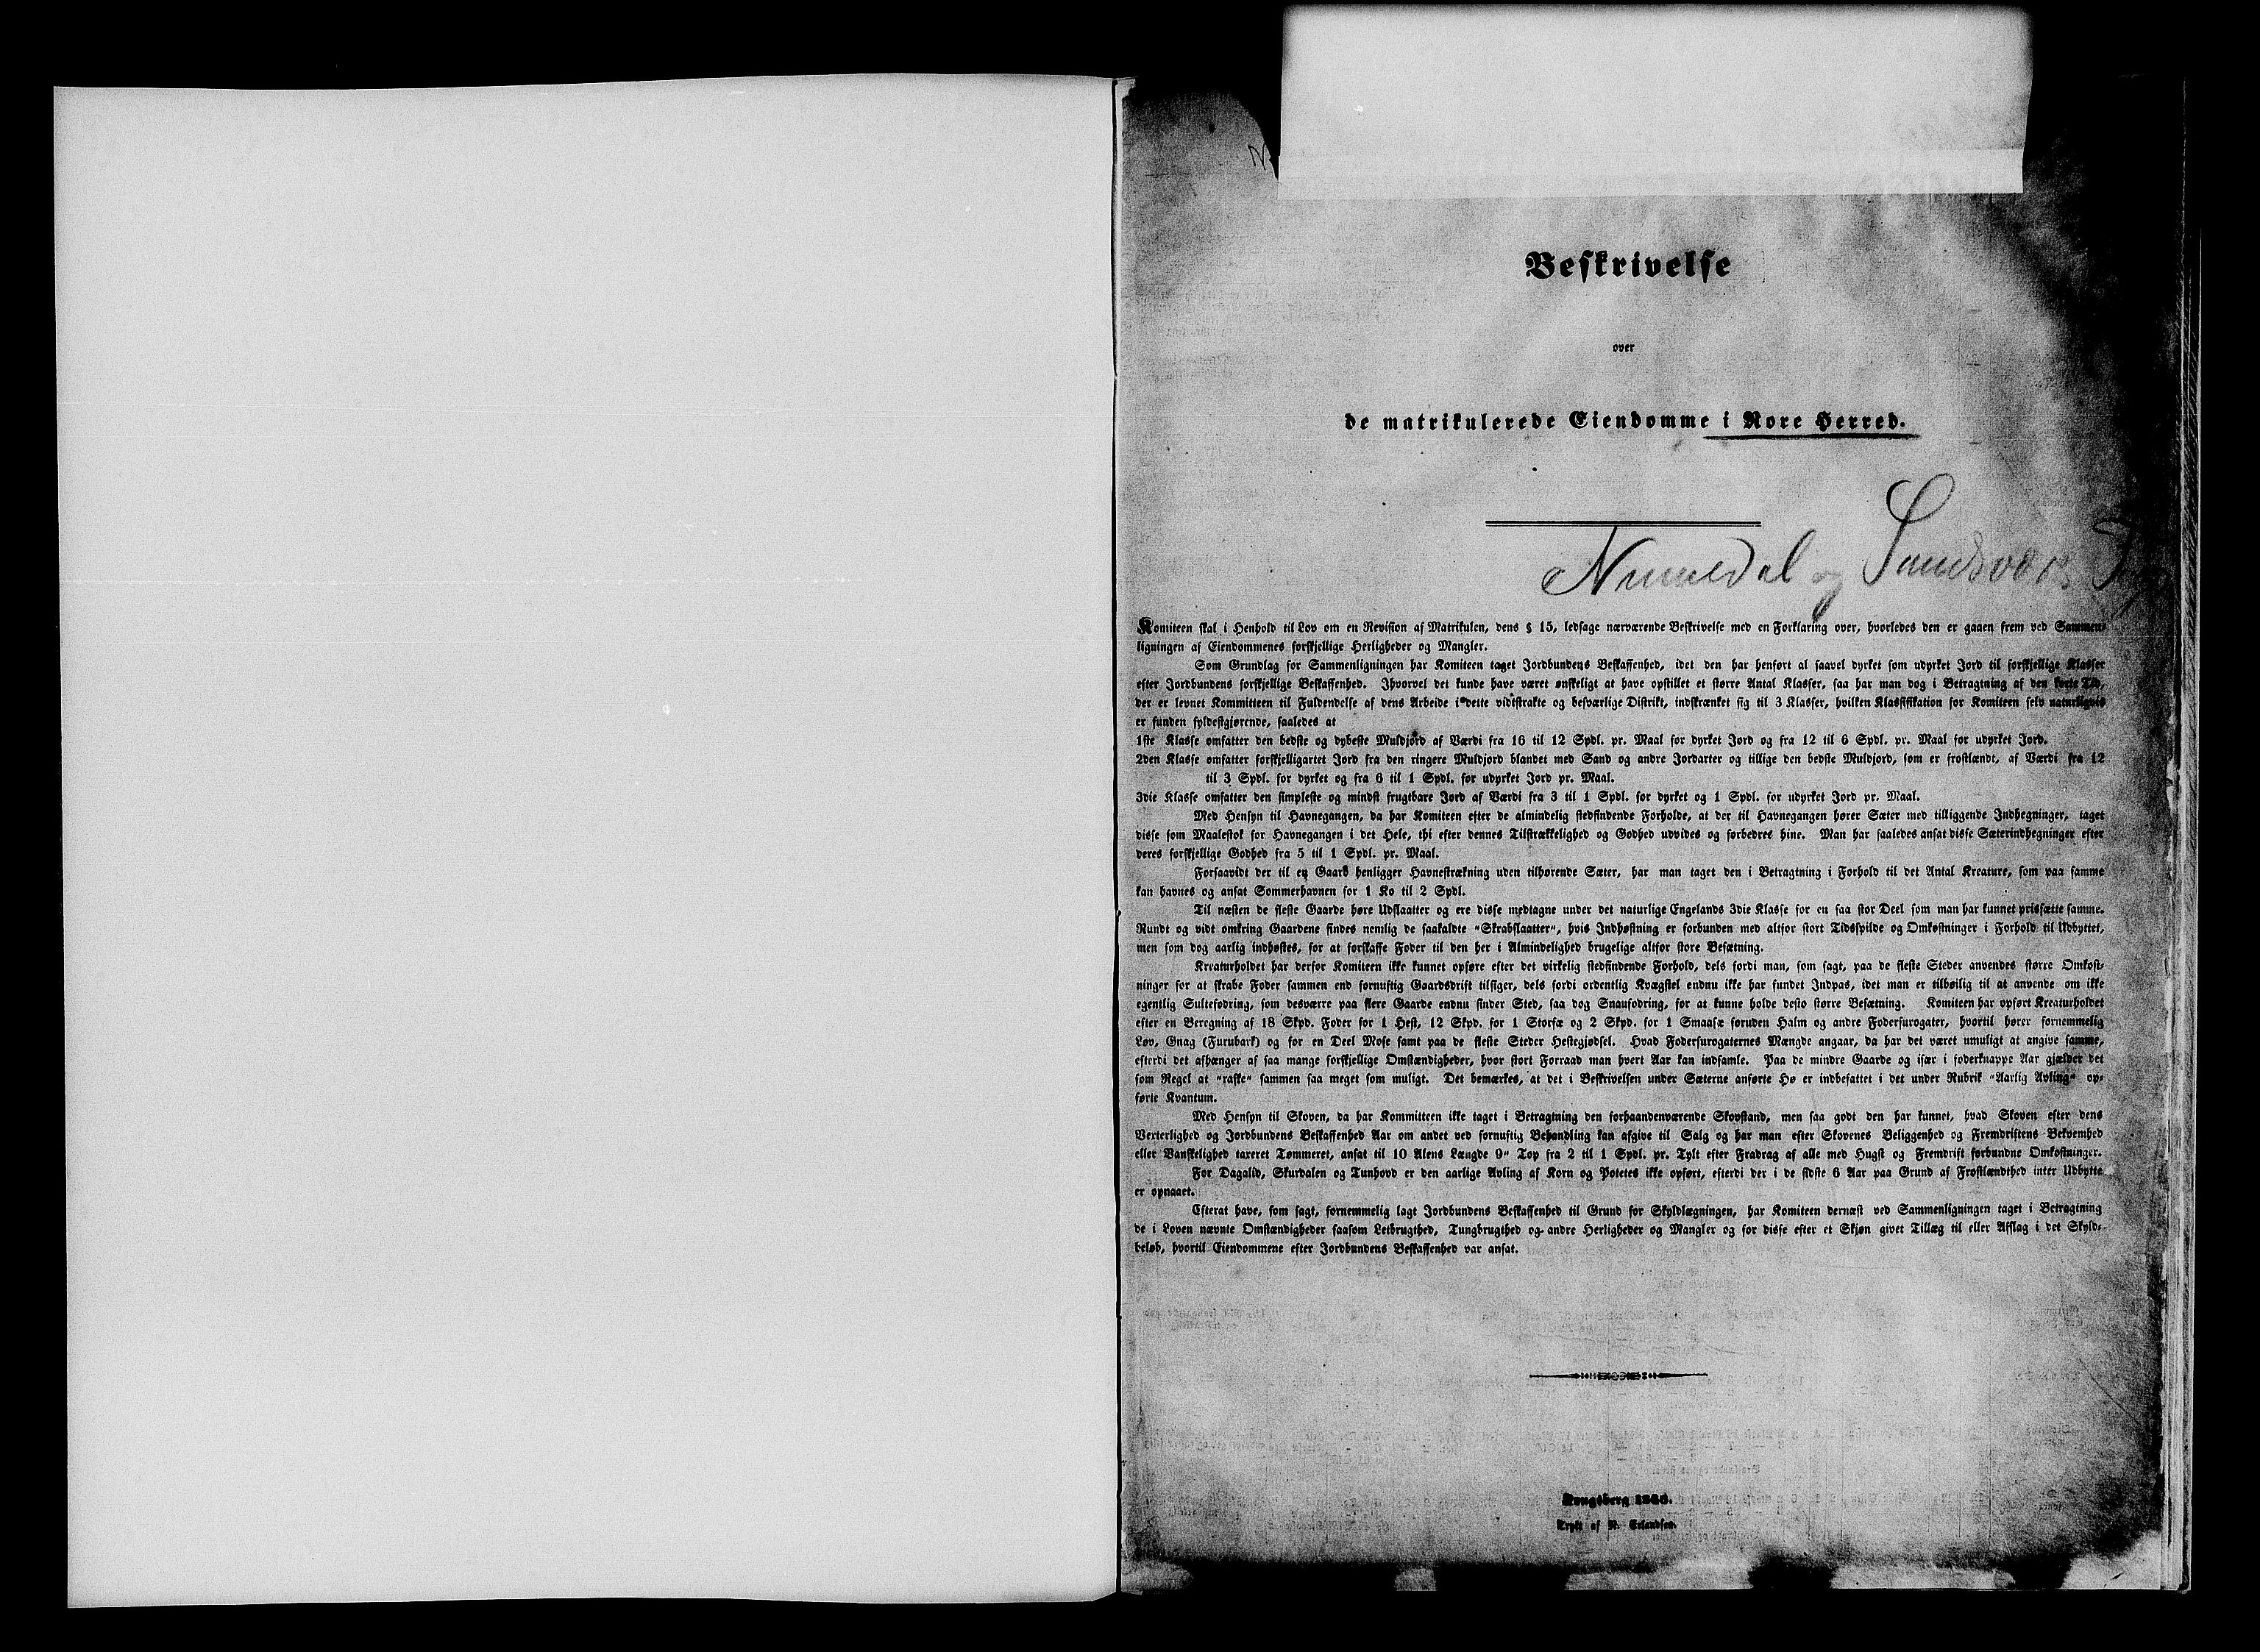 Beskrivelse
over
de matrikulerede Eiendomme i Nore Herred.
Numedal og Sandsværs
Komiteen skal i Henhold til Lov om en Revision af Matrikulen, dens § 15, ledsage nærværende Beskrivelse med en Forklaring over, hvorledes den er gaaen frem ved Sammen-
ligningen af Eiendommenes forskjellige Herligheder og Mangler.
Som Grundlag for Sammenligningen har Komiteen taget Jordbundens Beskaffenhed, idet den har henført al saavel dyrket som udyrket Jord til forskjellige Klasser
efter Jordbundens forskjellige Beskaffenhed. Ihvorvel det kunde have været ønskeligt at have opstillet et større Antal Klasser, saa har man dog i Betragtning af den korte Tid,
der er levnet Kommitteen til Fuldendelse af dens Arbeide i dette vidtstrakte og besværlige Distrikt, indskrænket sig til 3 Klasser, hvilken Klassifikation for Komiteen selv naturligvis
er funden fyldestgjørende, saaledes at
1ste Klasse omfatter den bedste og dybeste Muldjord af Værdi fra 16 til 12 Spdl. pr. Maal for dyrket Jord og fra 12 til 6 Spdl. pr. Maal for udyrket Jord.
2den Klasse omfatter forskjelligartet Jord fra den ringere Muldjord blandet med Sand og andre Jordarter og tillige den bedste Muldjord, som er frostlændt, af Værdi fra 12
til 3 Spdl. for dyrket og fra 6 til 1 Spdl. for udyrket Jord pr. Maal.
3die Klasse omfatter den simpleste og mindst frugtbare Jord af Værdi fra 3 til 1 Spdl. for dyrket og 1 Spdl. for udyrket Jord pr. Maal.
Med Hensyn til Havnegangen, da har Komiteen efter de almindelig stedfindende Forholde, at der til Havnegangen hører Sæter med tilliggende Indhegninger, taget
disse som Maalestok for Havnegangen i det Hele, thi efter dennes Tilstrækkelighed og Godhed udvides og forbedres hine. Man har saaledes ansat disse Sæterindhegninger efter
deres forskjellige Godhed fra 5 til 1 Spdl. pr. Maal.
Forsaavidt der til en Gaard henligger Havnestrækning uden tilhørende Sæter, har man taget den i Betragtning i Forhold til det Antal Kreature, som paa samme
kan havnes og ansat Sommerhavnen for 1 Ko til 2 Spdl.
Til næsten de fleste Gaarde høre Udslaatter og ere disse medtagne under det naturlige Engelands 3die Klasse for en saa stor Deel som man har kunnet prissætte samme.
Rundt og vidt omkring Gaardene findes nemlig de saakaldte "Skrabslaatter", hvis Indhøstning er forbunden med altfor stort Tidsspilde og Omkostninger i Forhold til Udbyttet,
men som dog aarlig indhøstes, for at forskaffe Foder til den her i Almindelighed brugelige altfor store Besætning.
Kreaturholdet har derfor Komiteen ikke kunnet opføre efter det virkelig stedfindende Forhold, dels fordi man, som sagt, paa de fleste Steder anvendes større Omkost-
ninger for at skrabe Foder sammen end fornuftig Gaardsdrift tilsiger, dels fordi ordentlig Kvægstel endnu ikke har fundet Indpas, idet man er tilbøilig til at anvende om ikke
egentlig Sultefodring, som desværre paa flere Gaarde endnu finder Sted, saa dog Snaufodring, for at kunne holde desto større Besætning. Komiteen har opført Kreaturholdet
efter en Beregning af 18 Skpd. Foder for 1 Hest, 12 Skpd. for 1 Storfæ og 2 Skpd. for 1 Smaafæ foruden Halm og andre Fodersurogater, hvortil hører fornemmelig
Løv, Gnag (Furubark) og for en Deel Mose samt paa de fleste Steder Hestegjødsel. Hvad Fodersurogaternes Mængde angaar, da har det været umuligt at angive samme,
efterdi det afhænger af saa mange forskjellige Omstændigheder, hvor stort Forraad man hvert Aar kan indsamle. Paa de mindre Gaarde og især i foderknappe Aar gjælder det
som Regel at "raske" sammen saa meget som muligt. Det bemærkes, at det i Beskrivelsen under Sæterne anførte Hø er indbefattet i det under Rubrik "Aarlig Avling" op-
førte Kvantum.
Med Hensyn til Skoven, da har Kommitteen ikke taget i Betragtning den forhaandenværende Skovstand, men saa godt den har kunnet, hvad Skoven efter dens
Vexterlighed og Jordbundens Beskaffenhed Aar om andet ved fornuftig Behandling kan afgive til Salg og har man efter Skovenes Beliggenhed og Fremdriftens Bekvemhed
eller Vanskelighed taxeret Tømmeret, ansat til 10 Alens Længde 9" Top fra 2 til 1 Spdl. pr. Tylt efter Fradrag af alle med Hugst og Fremdrift forbundne Omkostninger.
For Dagalid, Skurdalen og Tunhovd er den aarlige Avling af Korn og Potetes ikke opført, efterdi der i de sidste 6 Aar paa Grund af Frostlændthed intet Udbytte
er opnaaet.
Efterat have, som sagt, fornemmelig lagt Jordbundens Beskaffenhed til Grund for Skyldlægningen, har Komiteen dernæst ved Sammenligningen taget i Betragtning
de i Loven nævnte Omstændigheder saasom Letbrugthed, Tungbrugthed og andre Herligheder og Mangler og for disse efter et Skjøn givet Tillæg til eller Afslag i det Skyld-
beløb, hvortil Eiendommene efter Jordbundens Beskaffenhed var ansat.
Kongsberg
Trykt af N. Erlandsen.